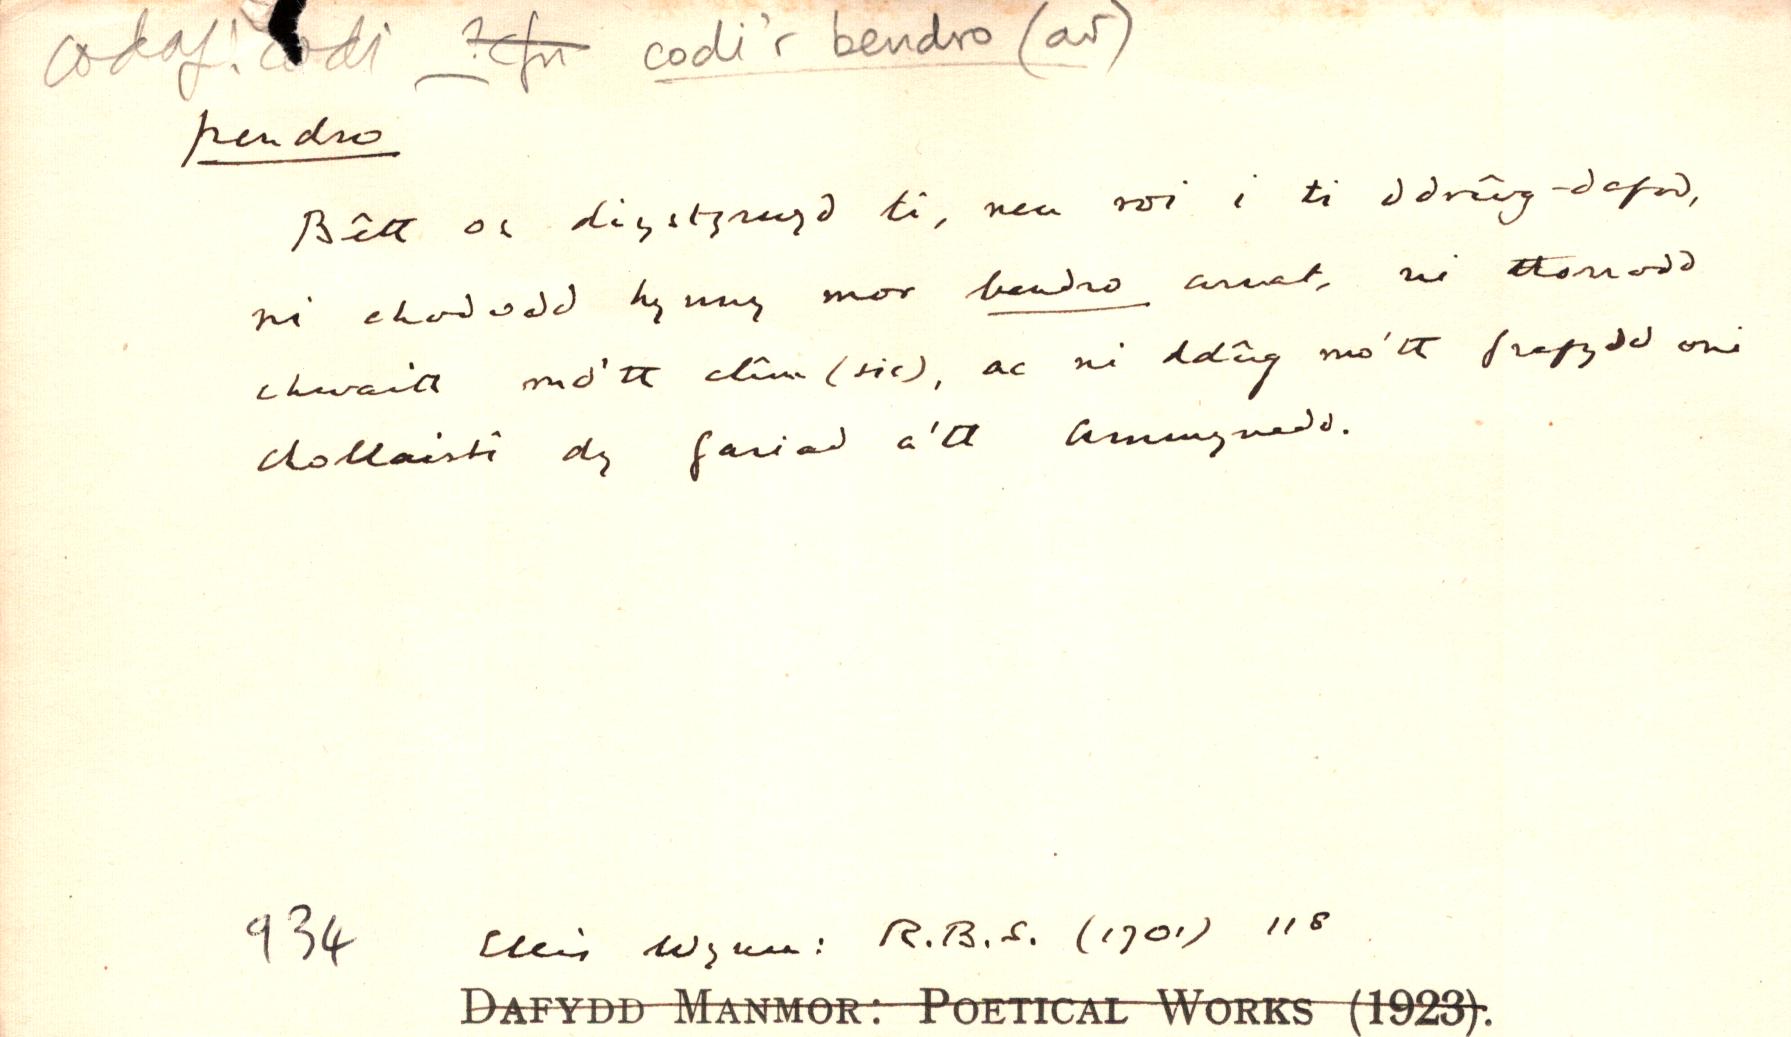 codaf: codi ?cfn codi'r bendro (ar)
pendro
Bêtt os diystyrwyd ti, neu roi i ti ddrŵg-dafod,
ni chododd hynny mor bendro arnat, ni ttorrodd
chwaitt mo'tt clûn (sic), ac ni ddûg mo'tt grefydd oni
chollaisti dy gariad a'tt ammynedd.
934 Ellis Wynn: R.B.S. (1701) 118
DAFYDD MANMOR: POETICAL WORKS (1923).